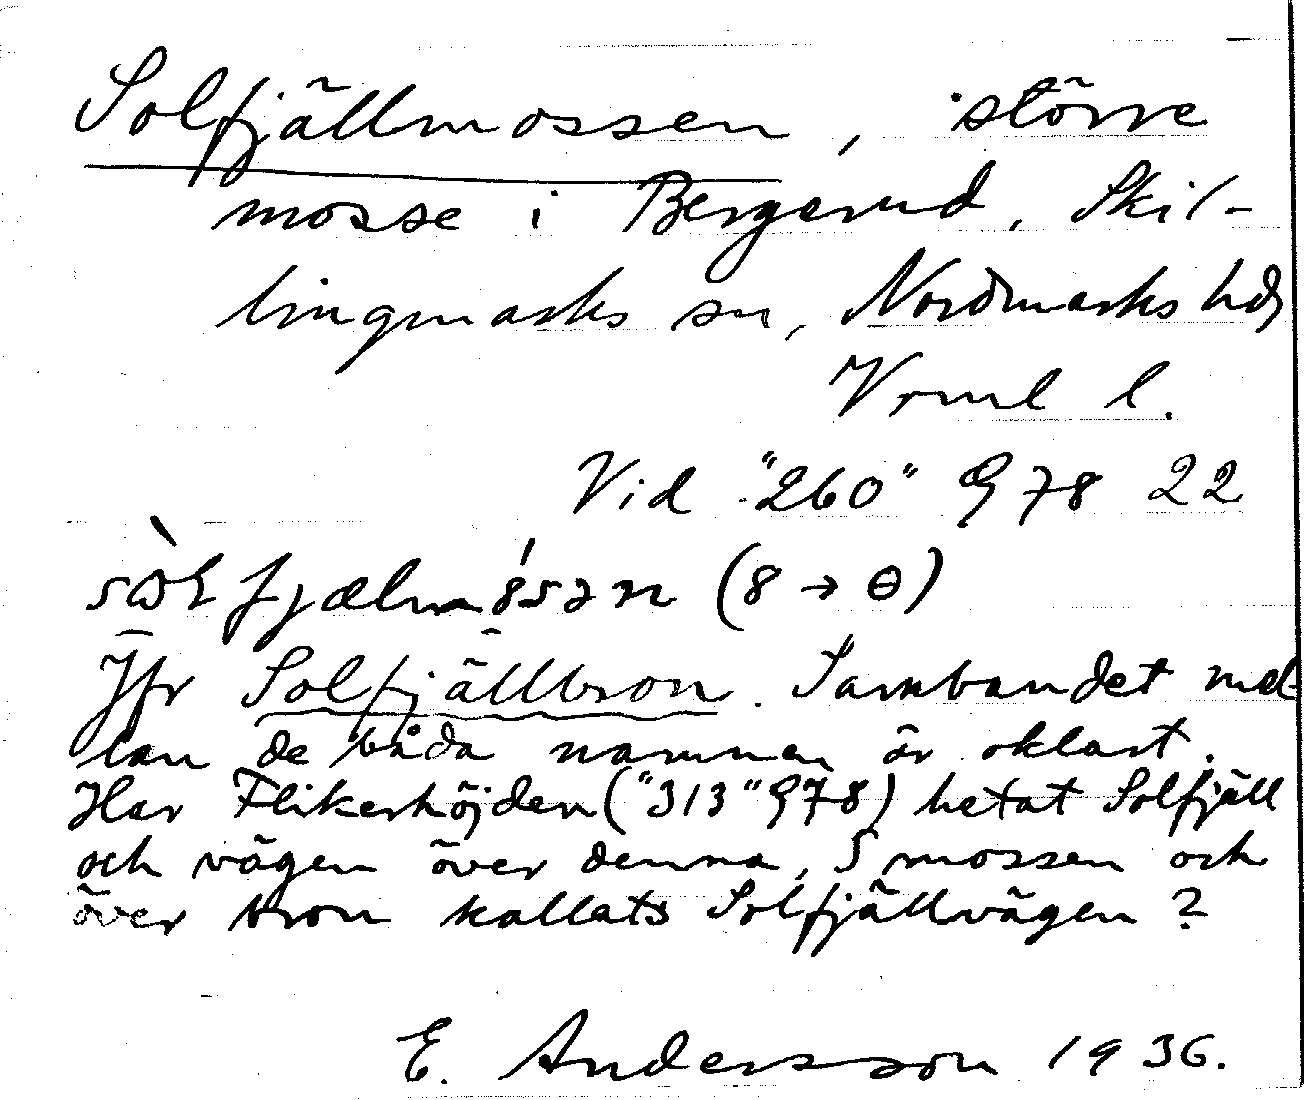 Solfjällmossen, större
mosse i Bergerud, Skil-
lingmarks sn, Nordmarks hd,
Vrml l.
Vid "260" G 78 22
(8 → θ)
Jfr Solfjällbron. Sambandet mel-
lan de båda namnen är oklart.
Har Flikerhöjden ("313" G78) hetat Solfjäll
och vägen över denna, S mossen och
över bron kallats Solfjällvägen?
E. Andersson 1936.